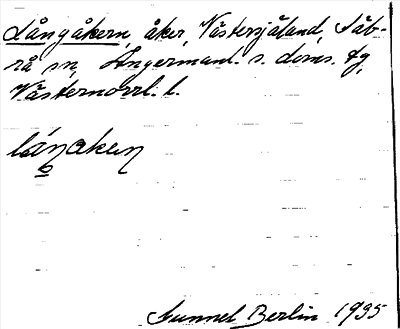 Långåkern, åker, Västersjåland, Säb-
rå sn, Ångermanl. s. doms. tg,
Västernorrl. l.
lánakeɳ
Gunnel Berlin 1935